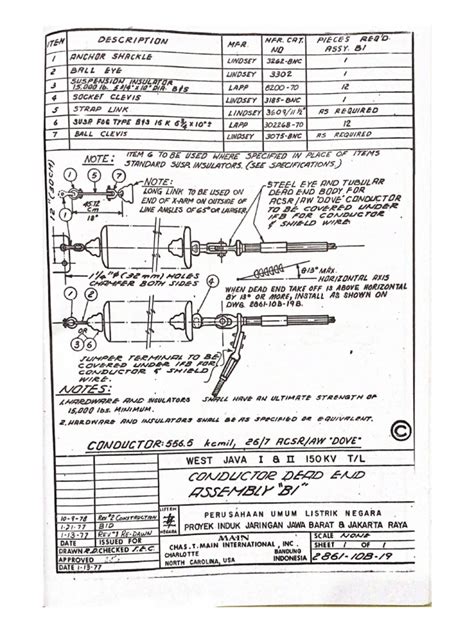 ITEM DESCRIPTION MFR. MFR. CAT. NO PIECES REQ'D. ASSY. B1
1 ANCHOR SHACKLE LINDSEY 3262-BNC 1
2 BALL EYE LINDSEY 3302 1
3 SUSPENSION INSULATOR 15,000 LB. 5 3/4" X 10" DIA. B&S LAPP 8200-70 12
4 SOCKET CLEVIS LINDSEY 3185-BNC 1
5 STRAP LINK LINDSEY AS REQUIRED
6 SUSP FOG TYPE B&S 15 K LAPP 302268-70 12
7 BALL CLEVIS LINDSEY 3075-BNC AS REQUIRED
NOTE: ITEM 6 TO BE USED WHERE SPECIFIED IN PLACE OF ITEMS
STANDARD SUSP. INSULATORS. (SEE SPECIFICATIONS.)
1 5 7
NOTE:
LONG LINK TO BE USED ON
END OF X-ARM ON OUTSIDE OF
LINE ANGLES OF 65° OR LARGER.
45.72
cm
18"
STEEL EYE AND TUBULAR
DEAD END BODY FOR
ACSR/AW 'DOVE' CONDUCTOR
TO BE COVERED UNDER
IFB FOR CONDUCTOR
& SHIELD WIRE
1 1/4" Φ (32 mm) HOLES
CHAMFER BOTH SIDES
θ 15° MAX.
HORIZONTAL AXIS
WHEN DEAD END TAKE OFF IS ABOVE HORIZONTAL
BY 15° OR MORE, INSTALL AS SHOWN ON
DWG. 2861-10B-19B.
1 2 4
OR
3 6
JUMPER TERMINAL TO BE
COVERED UNDER IFB FOR
CONDUCTOR & SHIELD
WIRE.
NOTES:
1. HARDWARE AND INSULATORS SHALL HAVE AN ULTIMATE STRENGTH OF
15,000 LBS. MINIMUM.
2. HARDWARE AND INSULATORS SHALL BE AS SPECIFIED OR EQUIVALENT.
©
CONDUCTOR: 556.5 kcmil, 26/7 ACSR/AW "DOVE"
WEST JAVA I & II 150 KV T/L
CONDUCTOR DEAD END
ASSEMBLY "B1"
10-9-78 REV #2 CONSTRUCTION
1-21-77 BID
1-13-77 REV #1 RE-DRAWN
DATE ISSUED FOR
DRAWN R.D. CHECKED
APPROVED
DATE 1-13-77
LISTRIK
NEGARA
PERUSAHAAN UMUM LISTRIK NEGARA
PROYEK INDUK JARINGAN JAWA BARAT & JAKARTA RAYA
MAIN
CHAS. T. MAIN INTERNATIONAL, INC.
CHARLOTTE BANDUNG
NORTH CAROLINA, USA INDONESIA
SCALE NONE
SHEET 1 OF 1
2861-10B-19